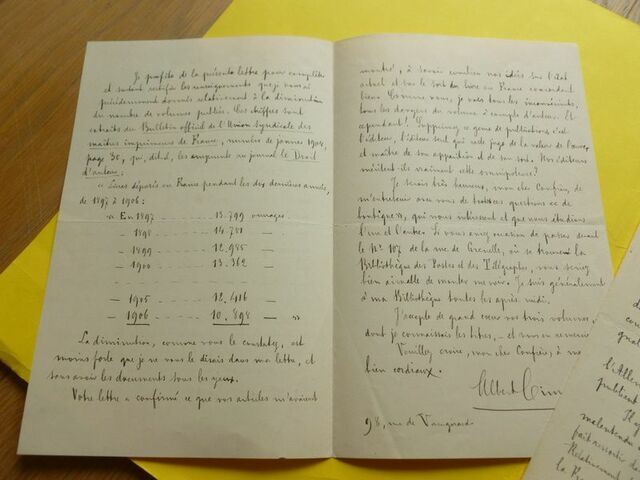 Je profite de la présente lettre pour compléter
et surtout rectifier les renseignements que je vous ai
précédemment donnés relativement à la diminution
du nombre de volumes publiés. Ces chiffres sont
extraits du Bulletin officiel de l'Union Syndicale des
maîtres imprimeurs de France, numéro de janvier 1908,
page 30, qui, dit-il, les emprunte au journal le Droit
d'auteur :
« Livres déposés en France pendant les dix dernières années,
de 1897 à 1906 :
« En 1897 — 13.799 ouvrages.
— 1898 — 14.781 —
— 1899 — 12.985 —
— 1900 — 13.362 —
— 1905 — 12.416 —
— 1906 — 10.898 — »
La diminution, comme vous le constatez, est
moins forte que je ne vous le disais dans ma lettre, et
sans avoir les documents sous les yeux.
Votre lettre a confirmé ce que vos articles m'avaient
montré, à savoir combien nos idées sur l'état
actuel et sur le sort du livre en France concordent
bien. Comme vous, je vois tous les inconvénients,
tous les dangers du volume à compte d'auteur. Et
cependant ! Supprimez ce genre de publications, c'est
l'éditeur, l'éditeur seul qui sera juge de la valeur de l'œuvre
et maître de son apparition et de son sort. Nos éditeurs
méritent-ils vraiment cette omnipotence ?
Je serais très heureux, mon cher Confrère, de
m'entretenir avec vous de toutes ces questions
qui nous intéressent et que nous étudions
l'un et l'autre. Si vous aviez occasion de passer devant
le No 107 de la rue de Grenelle, où se trouve la
Bibliothèque des Postes et des Télégraphes, vous seriez
bien aimable de monter me voir. Je suis généralement
à ma Bibliothèque toutes les après-midi.
J'accepte de grand cœur vos trois volumes,
dont je connaissais les titres, — et vous en remercie
Veuillez croire, mon cher Confrère, à mes
bien cordiaux.
Albert Cim
98, rue de Vaugirard.
l'Alle
publicat
Il y
malentendu
fait ressortir
Relativement
la B